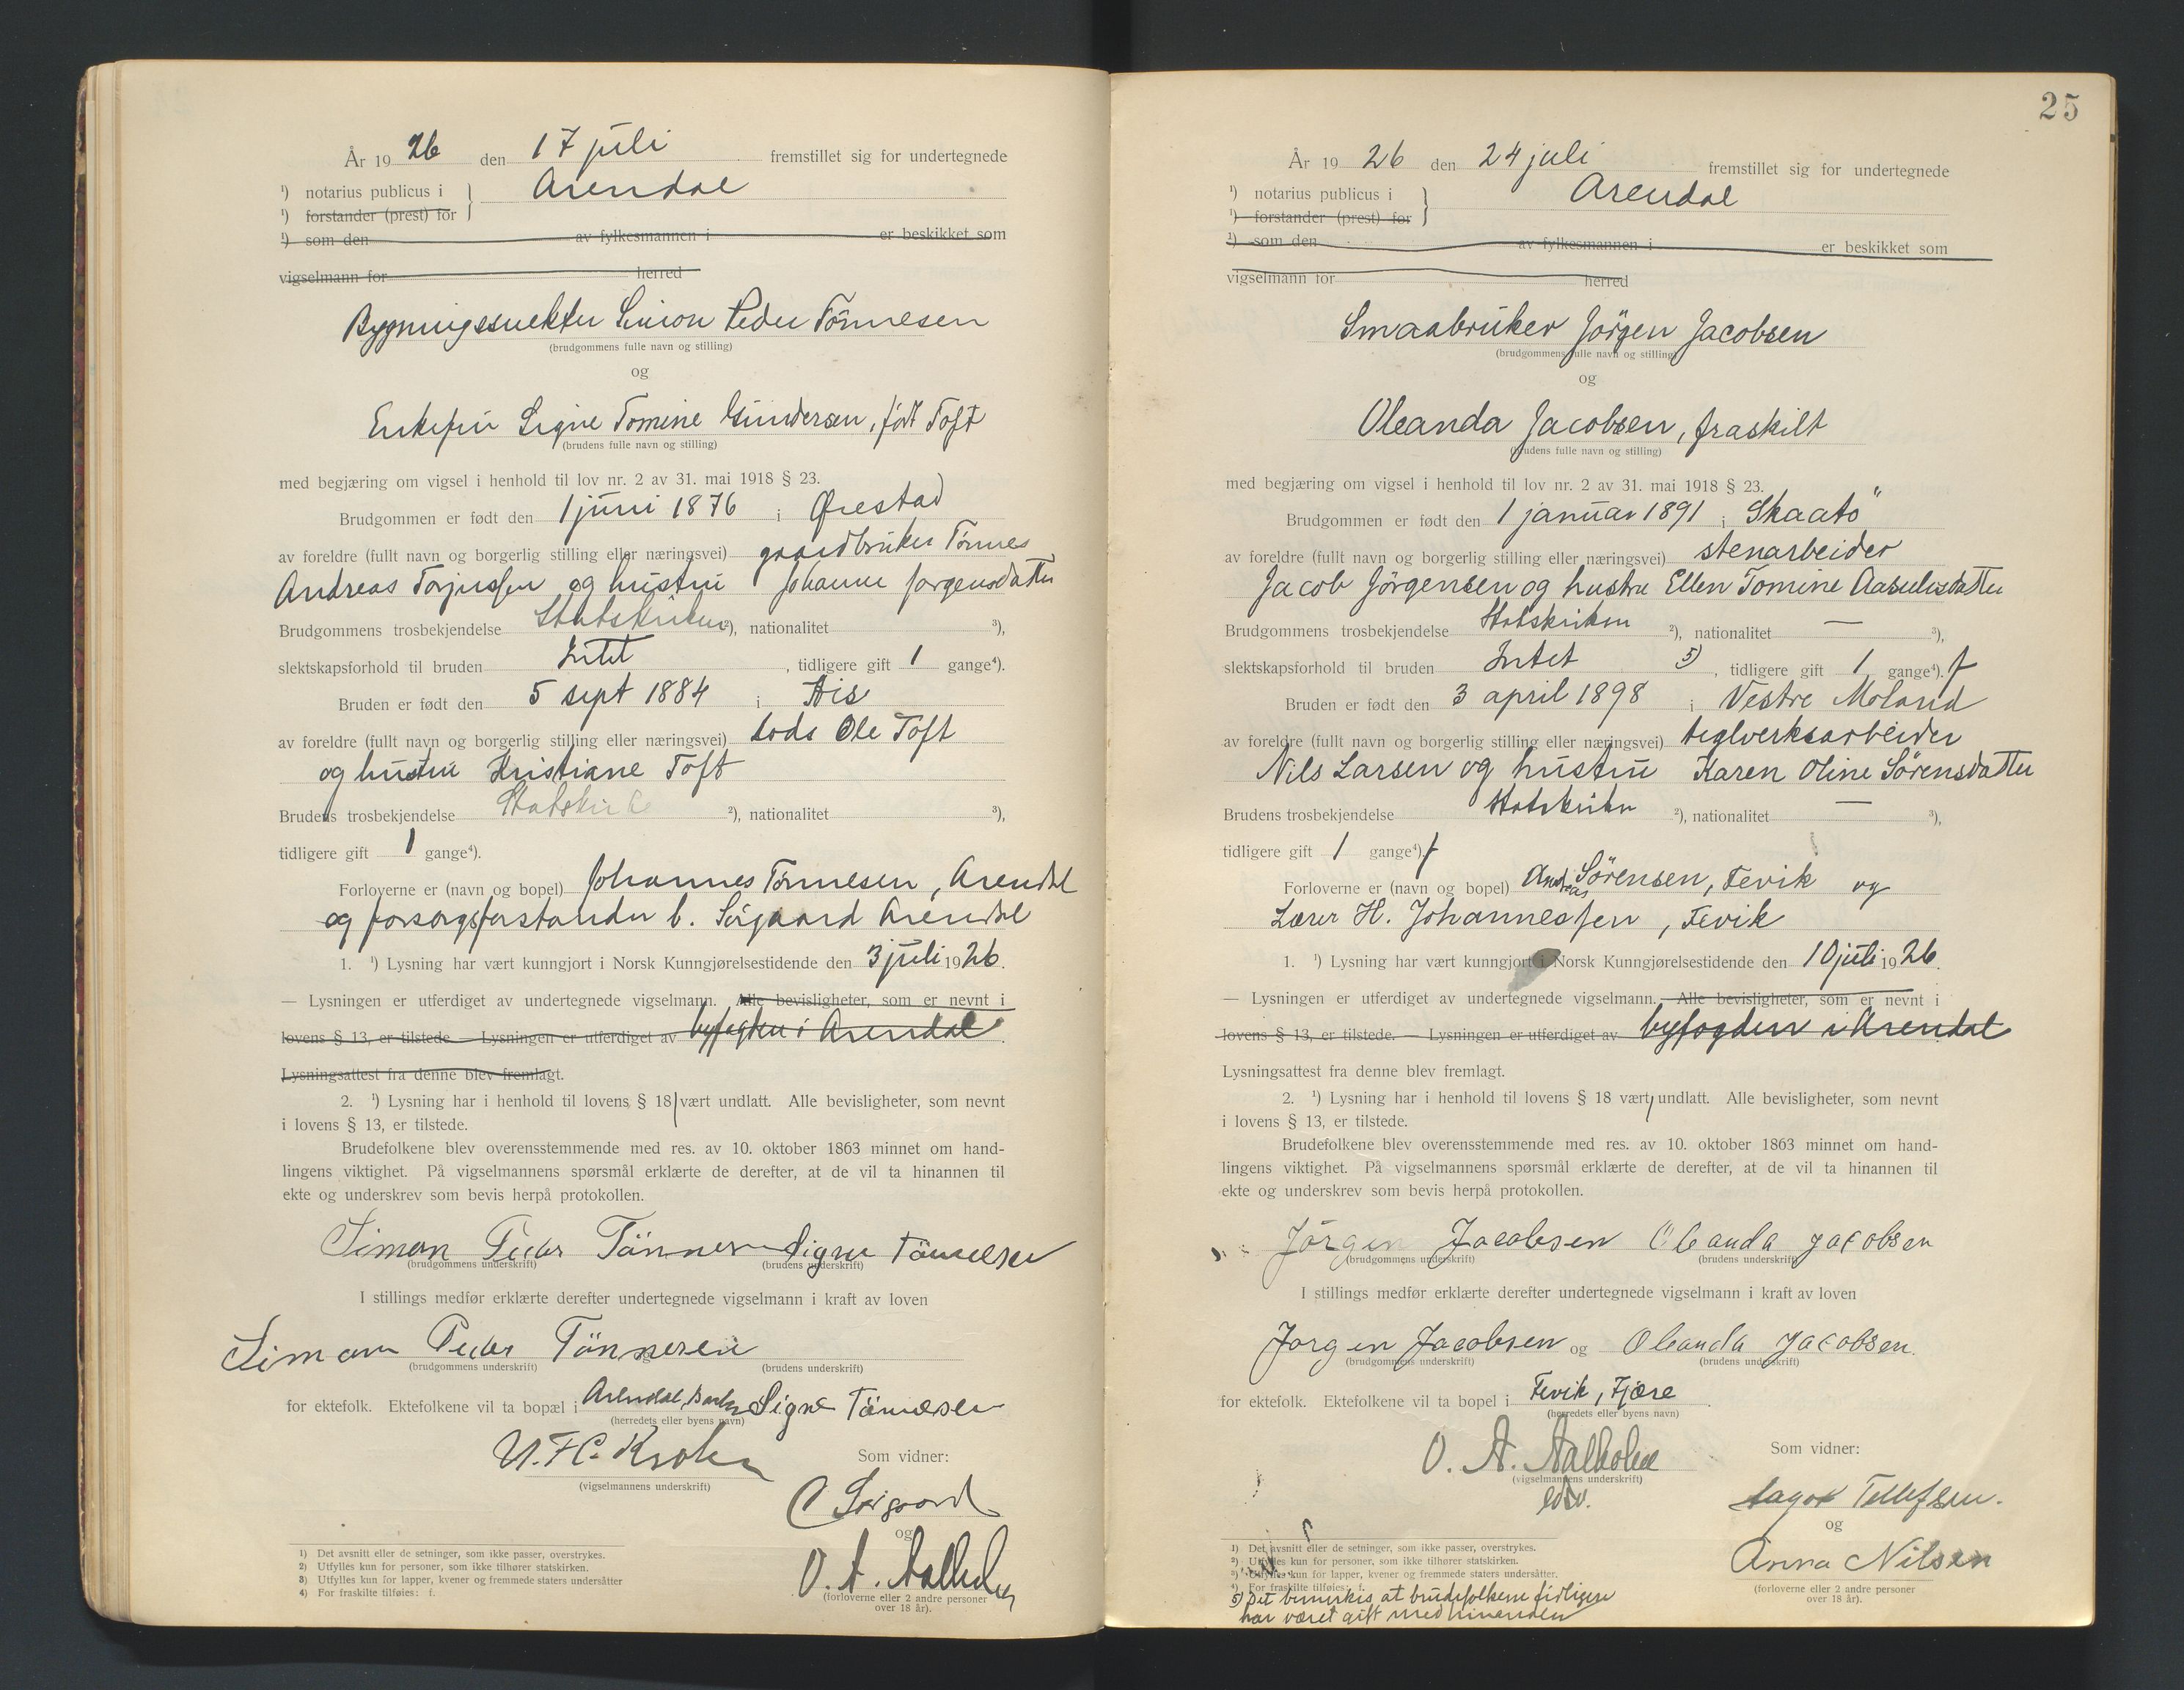 År 1926 den 17 juli fremstillet sig for undertegnede
¹) notarius publicus i Arendal
¹) forstander (prest) for
¹) som den av fylkesmannen i er beskikket som
vigselmann for herred
Simon Peder Tönnesen
(brudgommens fulle navn og stilling)
og
Enkefru Signe Tomine Gundersen, född Toft
(brudens fulle navn og stilling)
med begjæring om vigsel i henhold til lov nr. 2 av 31. mai 1918 § 23.
Brudgommen er født den 1 juni 1876 i Øiestad
av foreldre (fullt navn og borgerlig stilling eller næringsvei) gaardbruker Tönnes
Andreas Torjussen og hustru Johanne Jorgensdatter
Brudgommens trosbekjendelse Statskirken ²), nationalitet ³),
slektskapsforhold til bruden Intet , tidligere gift 1 gange⁴).
Bruden er født den 5 sept 1884 i His
av foreldre (fullt navn og borgerlig stilling eller næringsvei) Lods Ole Toft
og hustru Kristiane Toft
Brudens trosbekjendelse Statskirke ²), nationalitet ³),
tidligere gift 1 gange⁴).
Forloverne er (navn og bopel) Johannes Tönnesen, Arendal
og forsorgsforstander C. Sögaard Arendal
1. ¹) Lysning har vært kunngjort i Norsk Kunngjørelsestidende den 3 juli 1926.
— Lysningen er utferdiget av undertegnede vigselmann. Alle bevisligheter, som er nevnt i
lovens § 13, er tilstede. — Lysningen er utferdiget av byfogden i Arendal.
Lysningsattest fra denne blev fremlagt.
2. ¹) Lysning har i henhold til lovens § 18 vært undlatt. Alle bevisligheter, som nevnt
i lovens § 13, er tilstede.
Brudefolkene blev overensstemmende med res. av 10. oktober 1863 minnet om hand-
lingens viktighet. På vigselmannens spørsmål erklærte de derefter, at de vil ta hinannen til
ekte og underskrev som bevis herpå protokollen.
Simon Peder Tönnesen Signe Tönnesen
(brudgommens underskrift) (brudens underskrift)
I stillings medfør erklærte derefter undertegnede vigselmann i kraft av loven
Simon Peder Tönnesen
(brudgommens underskrift) (brudens underskrift)
for ektefolk. Ektefolkene vil ta bopæl i Arendal, Signe Tönnesen
(herredets eller byens navn)
U. F. C. Krohn Som vidner:
(vigselmannens underskrift)
C Sögaard
og
O. A. Aalholm
(forloverne eller 2 andre personer
over 18 år).
1) Det avsnitt eller de setninger, som ikke passer, overstrykes.
2) Utfylles kun for personer, som ikke tilhører statskirken.
3) Utfylles kun for lapper, kvener og fremmede staters undersåtter
4) For fraskilte tilføies: f.
25
År 1926 den 24 juli fremstillet sig for undertegnede
¹) notarius publicus i Arendal
¹) forstander (prest) for
¹) som den av fylkesmannen i er beskikket som
vigselmann for herred
Smaabruker Jörgen Jacobsen
(brudgommens fulle navn og stilling)
og
Oleanda Jacobsen, fraskilt
(brudens fulle navn og stilling)
med begjæring om vigsel i henhold til lov nr. 2 av 31. mai 1918 § 23.
Brudgommen er født den 1 januar 1891 i Skaatö
av foreldre (fullt navn og borgerlig stilling eller næringsvei) stenarbeider
Jacob Jörgensen og hustru Ellen Tomine Aasulvsdatter
Brudgommens trosbekjendelse Statskirken ²), nationalitet — ³),
slektskapsforhold til bruden Intet 5) , tidligere gift 1 gange⁴). f
Bruden er født den 3 april 1898 i Vestre Moland
av foreldre (fullt navn og borgerlig stilling eller næringsvei) teglverksarbeider
Nils Larsen og hustru Karen Oline Sörensdatter
Brudens trosbekjendelse Statskirken ²), nationalitet — ³),
tidligere gift 1 gange⁴). f
Forloverne er (navn og bopel) Andreas Sörensen, Fevik og
Lærer H. Johannessen, Fevik
1. ¹) Lysning har vært kunngjort i Norsk Kunngjørelsestidende den 10 juli 1926.
— Lysningen er utferdiget av undertegnede vigselmann. — Alle bevisligheter, som er nevnt i
lovens § 13, er tilstede. — Lysningen er utferdiget av byfogden i Arendal
Lysningsattest fra denne blev fremlagt.
2. ¹) Lysning har i henhold til lovens § 18 vært undlatt. Alle bevisligheter, som nevnt
i lovens § 13, er tilstede.
Brudefolkene blev overensstemmende med res. av 10. oktober 1863 minnet om hand-
lingens viktighet. På vigselmannens spørsmål erklærte de derefter, at de vil ta hinannen til
ekte og underskrev som bevis herpå protokollen.
Jörgen Jacobsen Oleanda Jacobsen
(brudgommens underskrift) (brudens underskrift)
I stillings medfør erklærte derefter undertegnede vigselmann i kraft av loven
Jorgen Jacobsen og Oleanda Jacobsen.
(brudgommens underskrift) (brudens underskrift)
for ektefolk. Ektefolkene vil ta bopel i Fevik, Fjære.
(herredets eller byens navn)
O. A. Aalholm Som vidner:
(vigselmannens underskrift)
edsv.
Aagot Tellefsen.
og
Anna Nilsen
(forloverne eller 2 andre personer
over 18 år).
1) Det avsnitt eller de setninger, som ikke passer, overstrykes.
2) Utfylles kun for personer, som ikke tilhører statskirken.
3) Utfylles kun for lapper, kvener og fremmede staters undersåtter.
4) For fraskilte tilføies: f.
5) Det bemerkes at brudefolkene tidligere
har været gift med hinanden